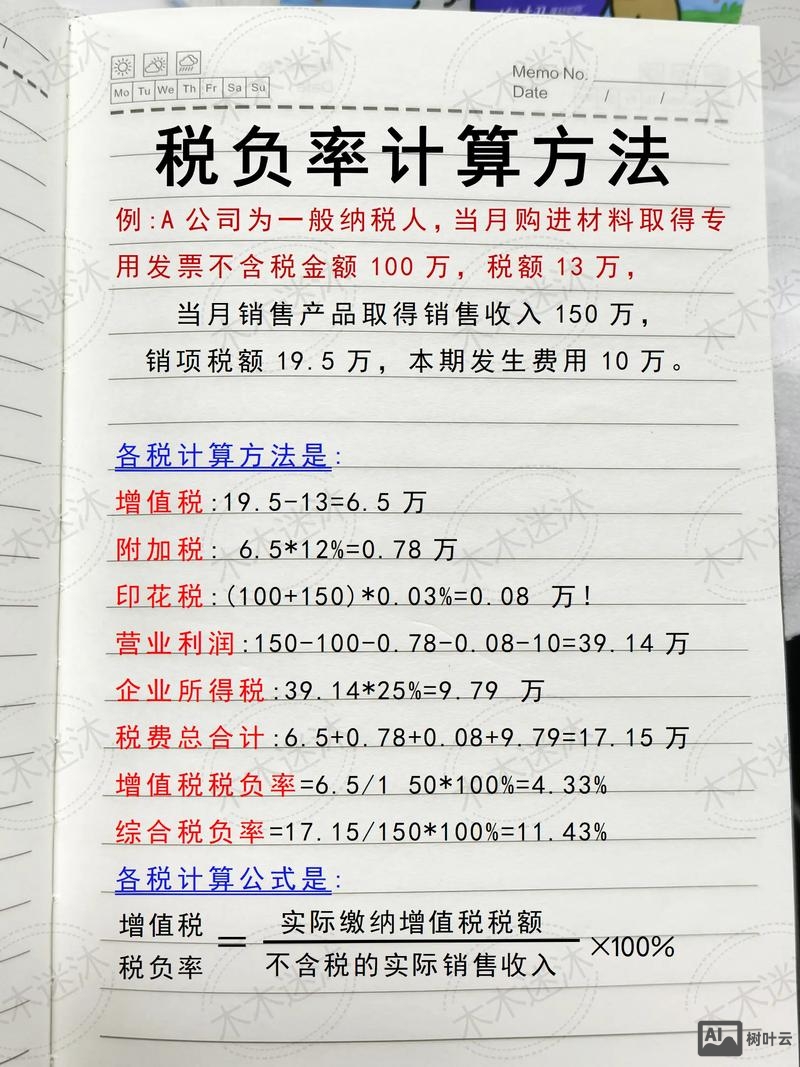 Mo Tu We Th Fr Sa Su
Memo No.
Date / /
税负率计算方法
例:A 公司为一般纳税人,当月购进材料取得专
用发票不含税金额 100 万，税额 13 万，
当月销售产品取得销售收入 150 万，
销项税额 19.5 万，本期发生费用 10 万。
各税计算方法是:
增值税:19.5-13=6.5 万
附加税: 6.5*12%=0.78 万
印花税:(100+150)*0.03%=0.08 万!
营业利润:150-100-0.78-0.08-10=39.14 万
企业所得税:39.14*25%=9.79 万
税费总合计:6.5+0.78+0.08+9.79=17.15 万
增值税税负率=6.5/1 50*100%=4.33%
综合税负率=17.15/150*100%=11.43%
各税计算公式是:
增值税
税负率
=
实际缴纳增值税税额
不含税的实际销售收入
×100%
木木迷沐
AI 树叶云